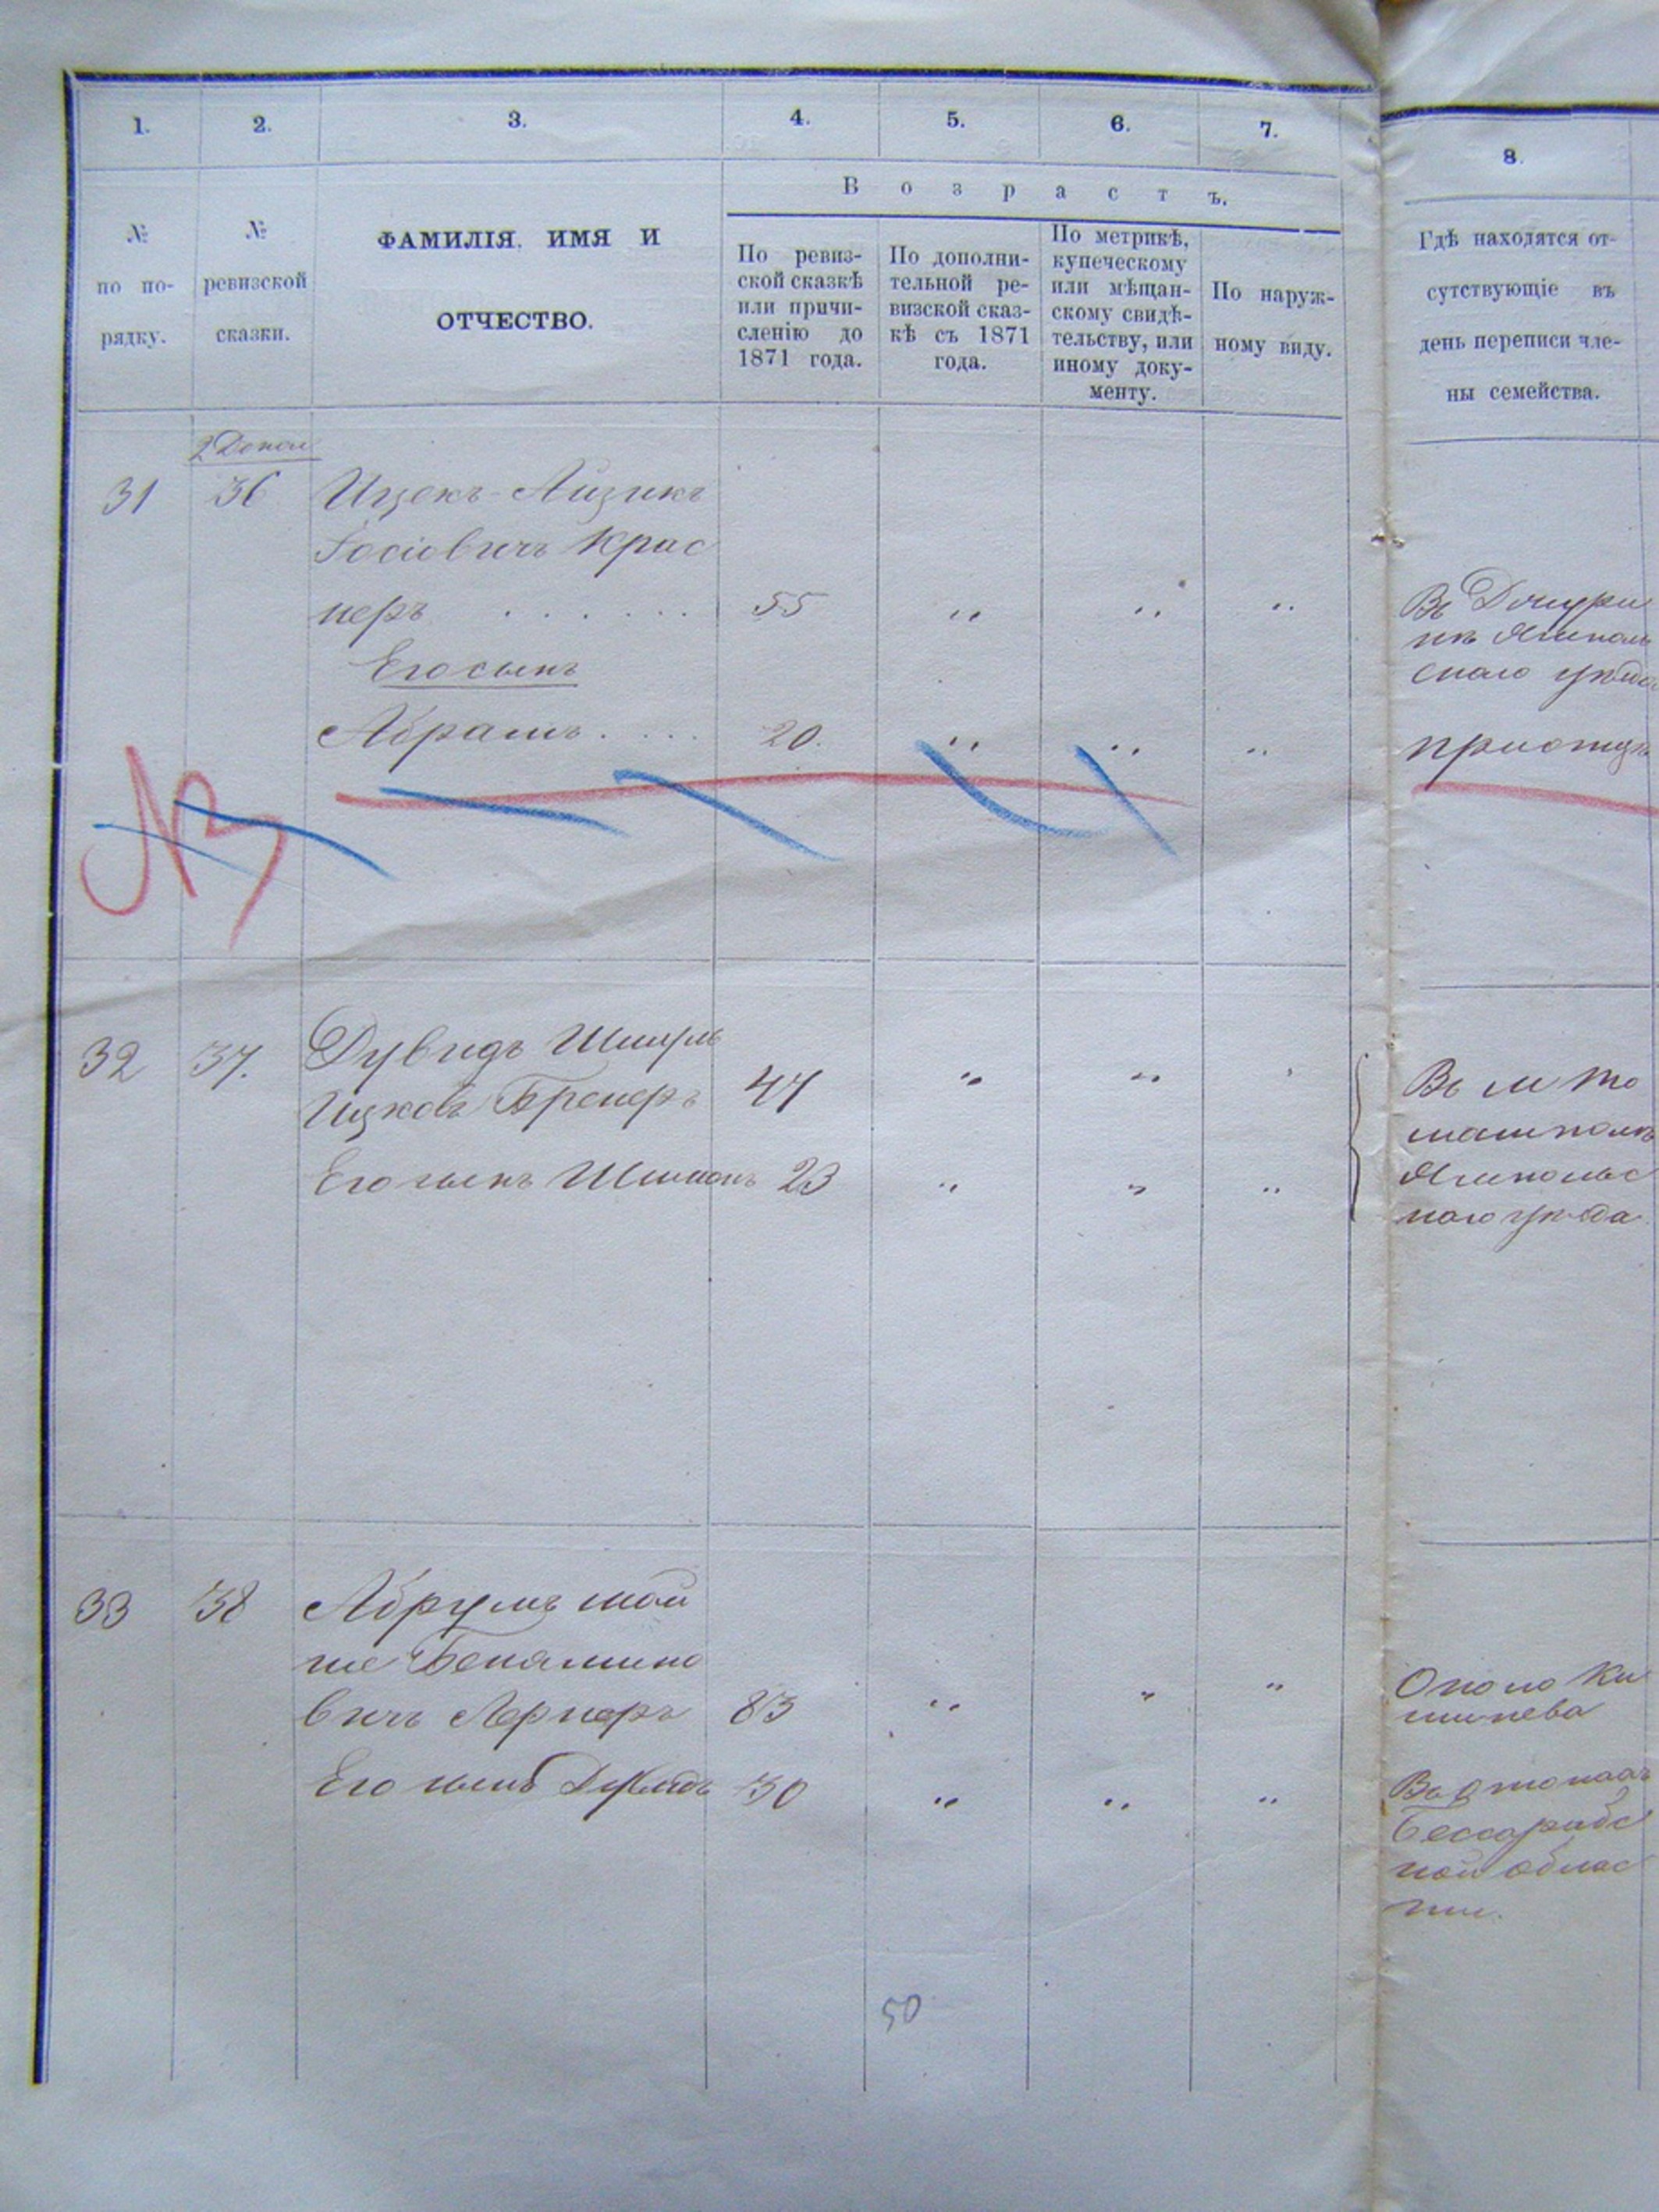 1. 2. 3. 4. 5. 6. 7. 8.
Возрастъ.
№ по порядку.
№ ревизской сказки.
ФАМИЛІЯ, ИМЯ И
ОТЧЕСТВО.
По ревиз-
ской сказкѣ
или причи-
сленію до
1871 года.
По дополни-
тельной ре-
визской сказ-
кѣ съ 1871
года.
По метрикѣ,
купеческому
или мѣщан-
скому свидѣ-
тельству, или
иному доку-
менту.
По наруж-
ному виду.
Гдѣ находятся от-
сутствующіе въ
день переписи чле-
ны семейства.
2 Допол
31 36 Ицекъ-Айзикъ
Іосіовичъ Крас
неръ 55
Его сынъ
Абрамъ 20.
Въ
Ямполь
скаго уѣзда
32 37. Дувидъ Шмуль
Ицковъ Бренеръ 47
Его сынъ Шимонъ 23
Въ м То
машполѣ
Ямпольс
каго уѣзда
33 38 Абрумъ Мой
ше Бенямино
вичъ Лернеръ 83
Его сынъ Дувидъ 30
Около Ки
шинева
Бессарабс
кой облас
ти.
50